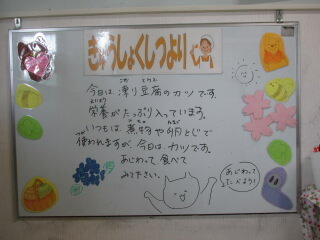 きゅうしょくしつより
今日は凍り豆腐のカツです。
栄養がたっぷり入っています。
いつもは煮物や卵とじで
使われますが、今日はカツです。
あじわって食べて
みてください。
あじわって
たべよう!